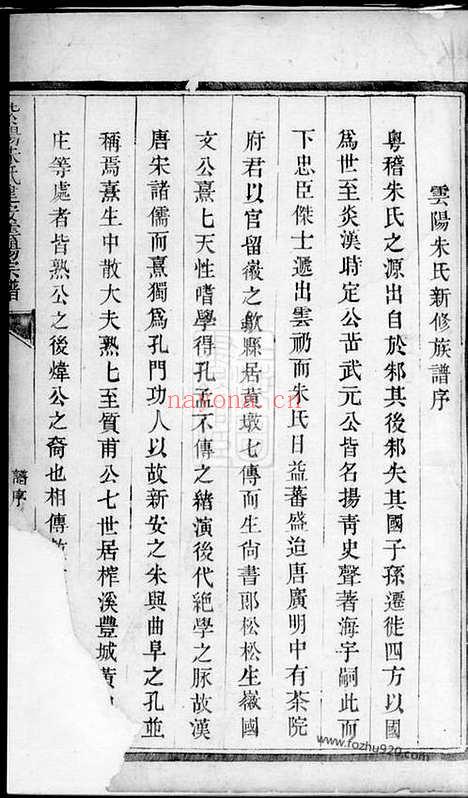 雲陽朱氏新修族譜序
粵稽朱氏之源出自於邾其後邾失其國子孫遷徙四方以國
爲世至炎漢時定公岀武元公皆名揚青史聲著海宇嗣此而
下忠臣傑士遞出雲礽而朱氏日益蕃盛迨唐廣明中有茶院
府君以官留徽之歙縣居黃墩七傳而生尙書郎松松生徽國
文公熹七天性嗜學得孔孟不傳之緖演後代絶學之脉故漢
唐宋諸儒而熹獨爲孔門功人以故新安之朱與曲阜之孔並
稱焉熹生中散大夫熟七至質甫公七世居榨溪豐城黃
庄等處者皆熟公之後煒公之裔也相傳
譜序
宗譜
nayona.cn
www.fozhu920.com